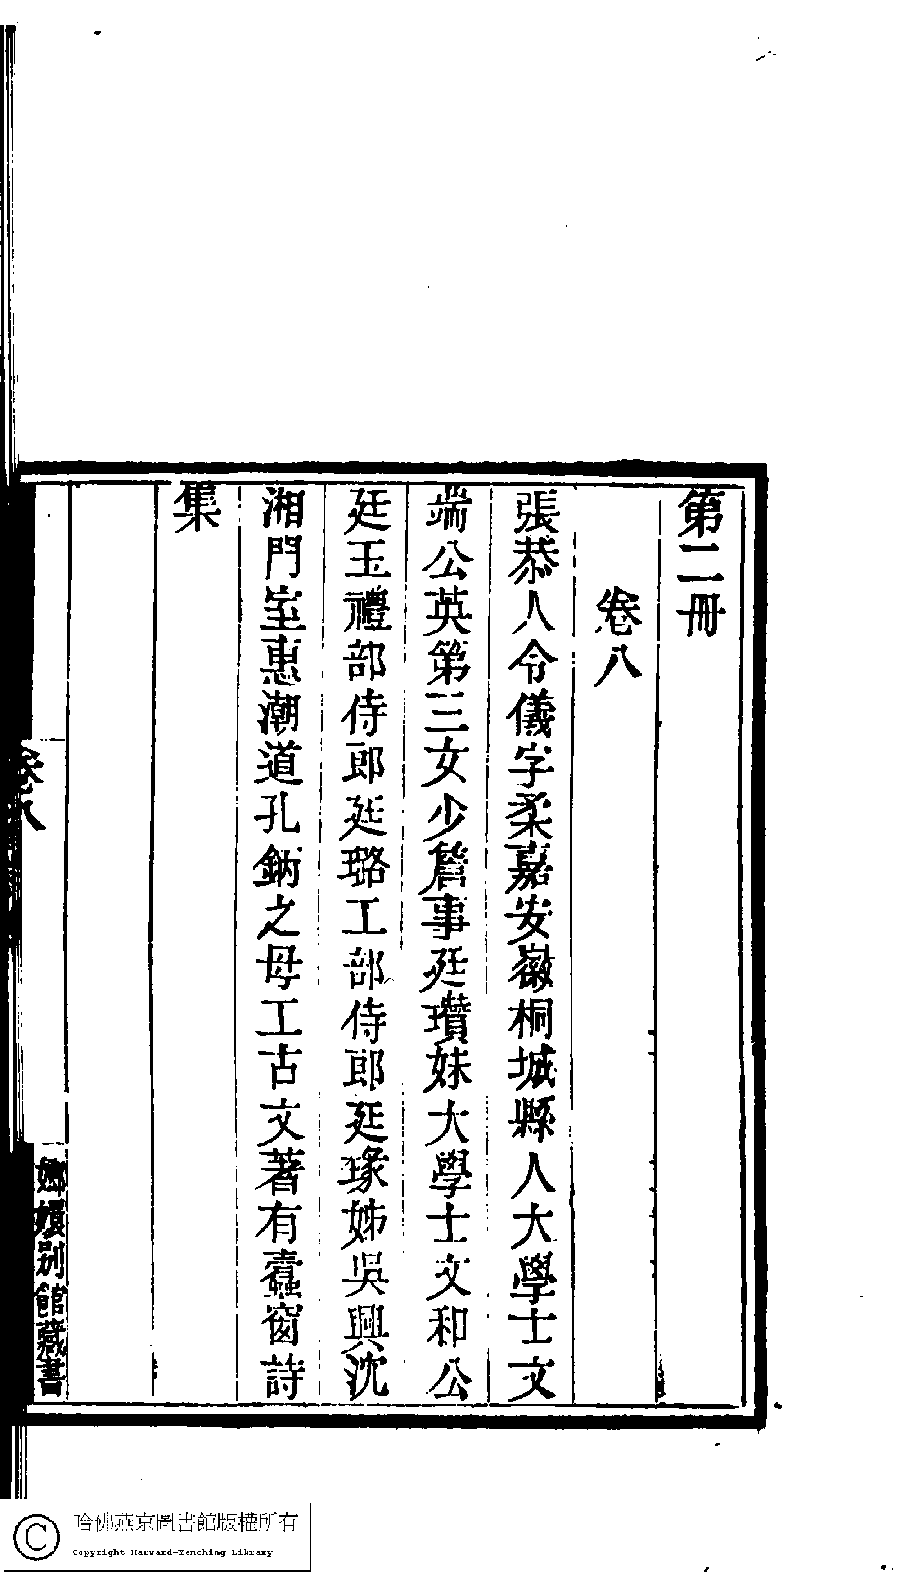 第二冊
卷八
張恭人令儀字柔嘉安徽桐城縣人大學士文
端公英第三女少詹事廷瓚妹大學士文和公
廷玉禮部侍郎廷璐工部侍郎廷瑑姊吳興沈
湘門室惠潮道孔鈵之母工古文著有蠹窗詩
集
卷八
嫏嬛別館藏書
哈佛燕京圖書館版權所有
Copyright Harvard-Yenching Library